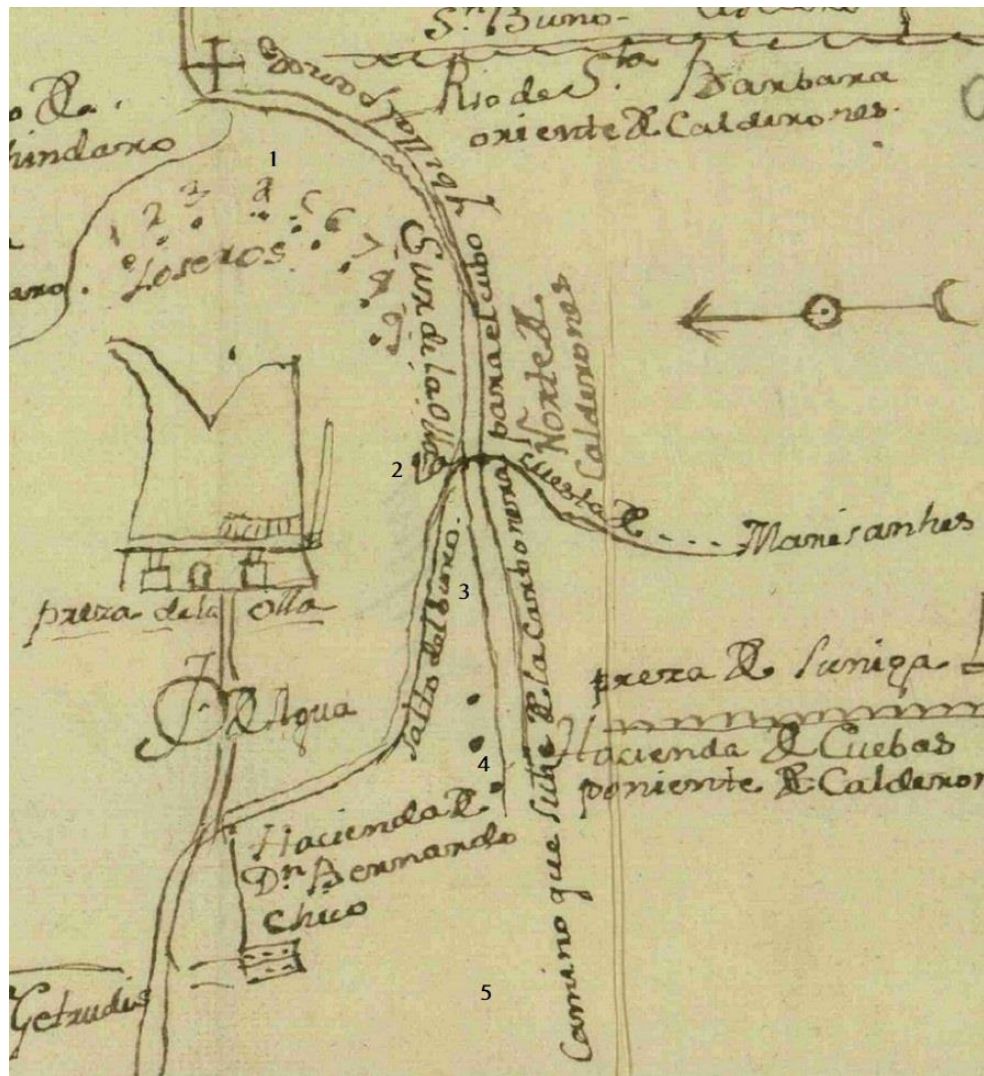 Sn. Buno-
Rio de Sta. Barbara
oriente de Calderones.
1
1 2 3 4 5 6 7 8 9
Loseros
Sur de la Olla
para el cubo
Norte de
Calderones
2
cuesta de
Manisanhes
3
preza de la Olla
salto del burro.
Camino que sube de la Carbonera
preza de Suniga
de Agua
Hacienda de Cuebas
poniente de Calderon
4
Hacienda de
Dn. Bernardo
Chico
5
Getrudis